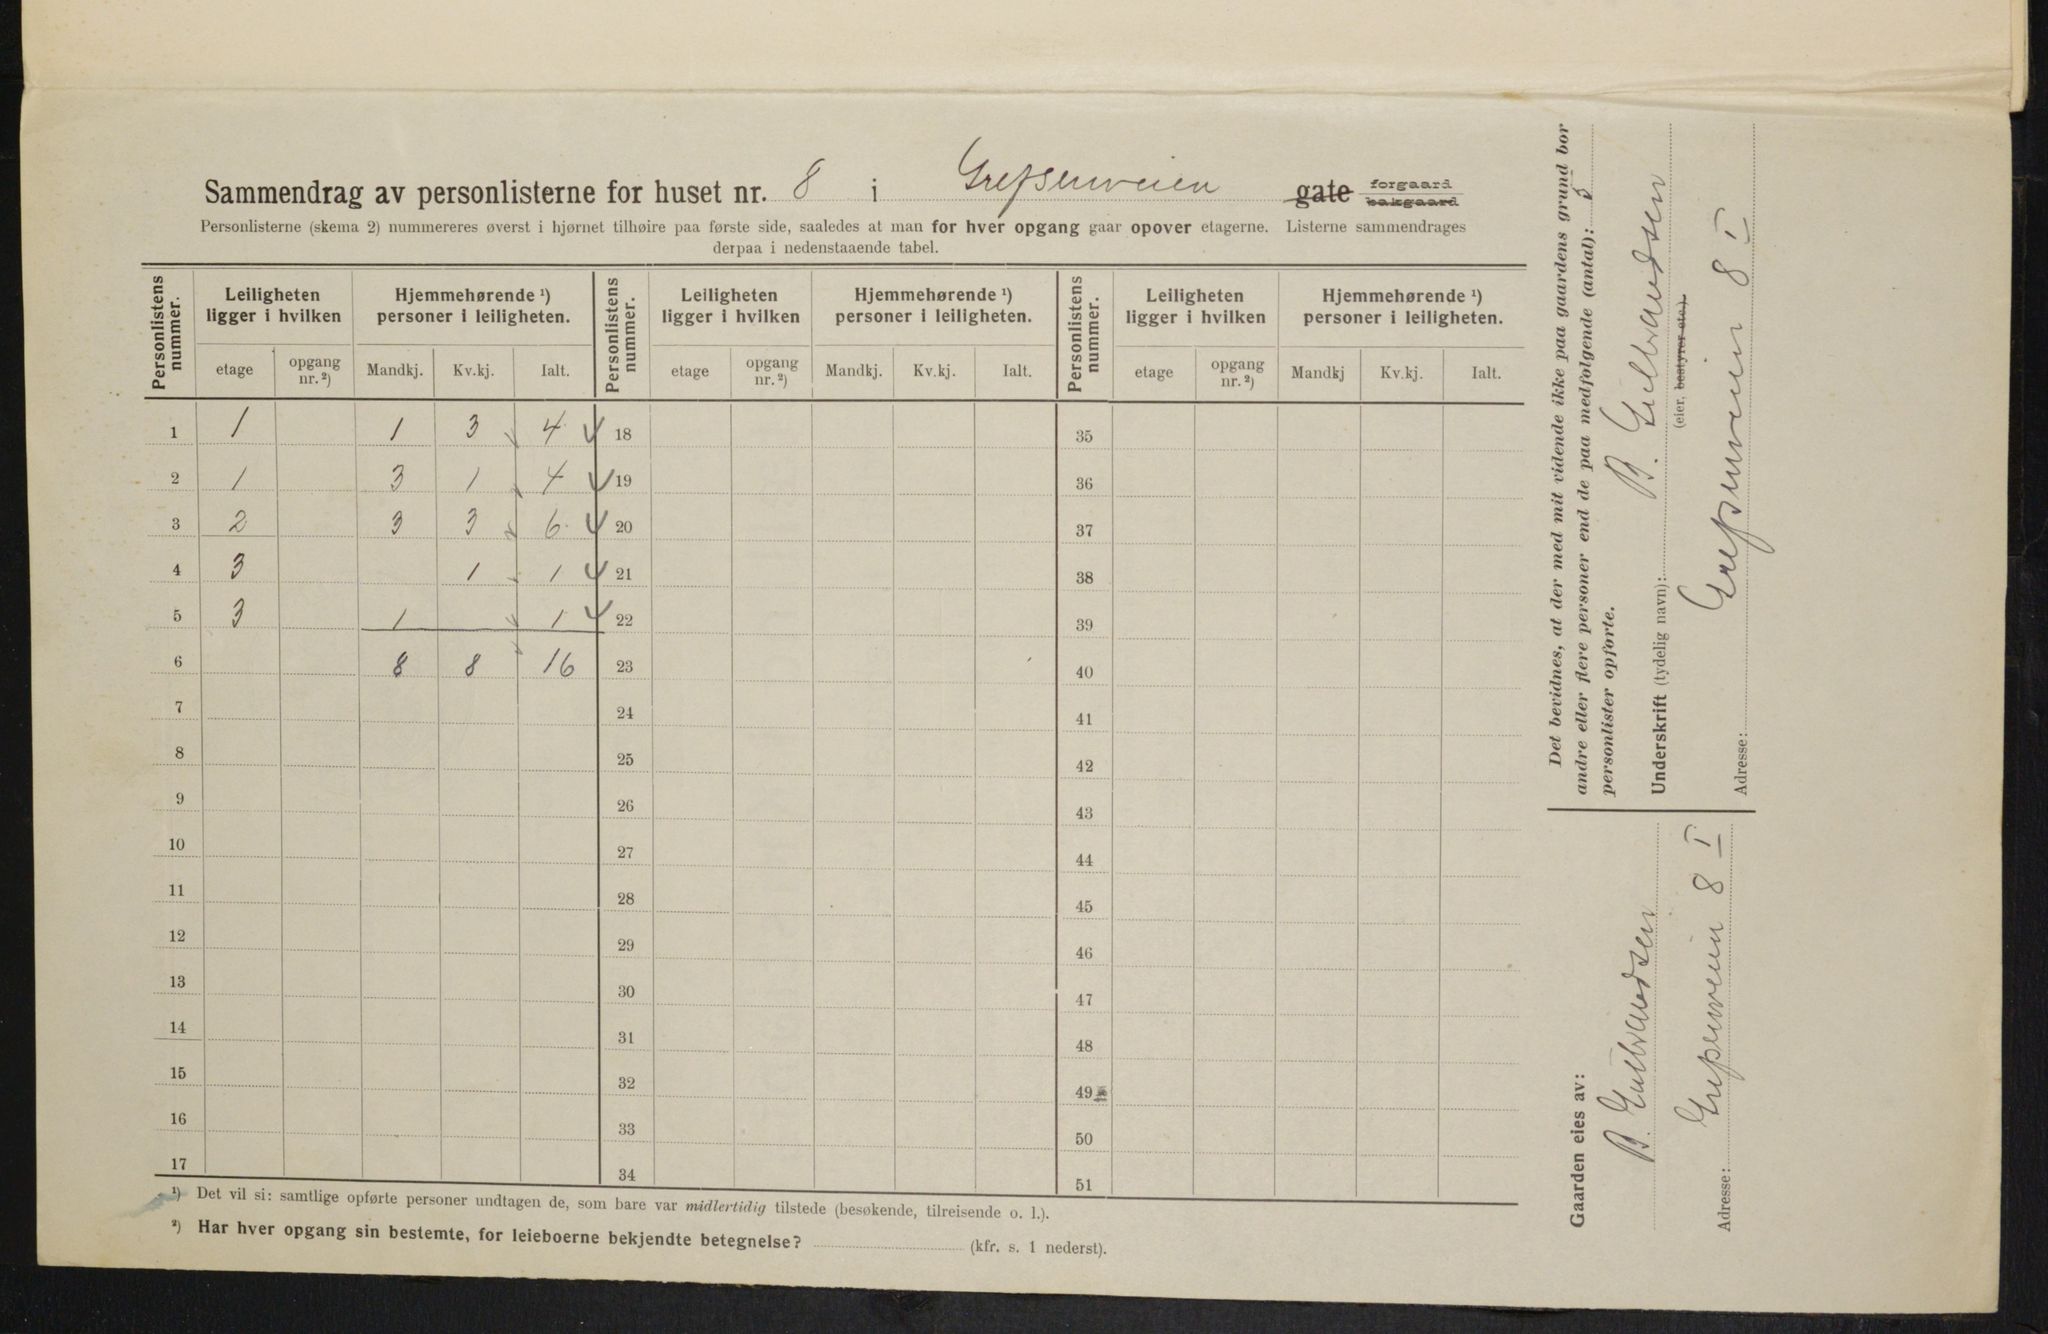 Sammendrag av personlisterne for huset nr. 8 i Grefsenveien gate forgaard bakgaard
Personlisterne (skema 2) nummereres øverst i hjørnet tilhøire paa første side, saaledes at man for hver opgang gaar opover etagerne. Listerne sammendrages
derpaa i nedenstaaende tabel.
Personlistens nummer. Leiligheten ligger i hvilken Hjemmehørende ¹) personer i leiligheten. Personlistens nummer. Leiligheten ligger i hvilken Hjemmehørende ¹) personer i leiligheten. Personlistens nummer. Leiligheten ligger i hvilken Hjemmehørende ¹) personer i leiligheten.
etage opgang nr. ²) Mandkj. Kv.kj. Ialt. etage opgang nr. ²) Mandkj. Kv.kj. Ialt. etage opgang nr. ²) Mandkj Kv.kj. Ialt.
1 1 1 3 4 18 35
2 1 3 1 4 19 36
3 2 3 3 6 20 37
4 3 1 1 21 38
5 3 1 1 22 39
6 8 8 16 23 40
7 24 41
8 25 42
9 26 43
10 27 44
11 28 45
12 29 46
13 30 47
14 31 48
15 32 49
16 33 50
17 34 51
¹) Det vil si: samtlige opførte personer undtagen de, som bare var midlertidig tilstede (besøkende, tilreisende o. l.).
²) Har hver opgang sin bestemte, for leieboerne bekjendte betegnelse? (kfr. s. 1 nederst).
Det bevidnes, at der med mit vidende ikke paa gaardens grund bor
andre eller flere personer end de paa medfølgende (antal): 5
personlister opførte.
Underskrift (tydelig navn): B. Gulbrandsen
(eier, bestyrer etc.).
Adresse: Grefsenveien 8 I
Gaarden eies av:
B. Gulbrandsen
Adresse: Grefsenveien 8 I